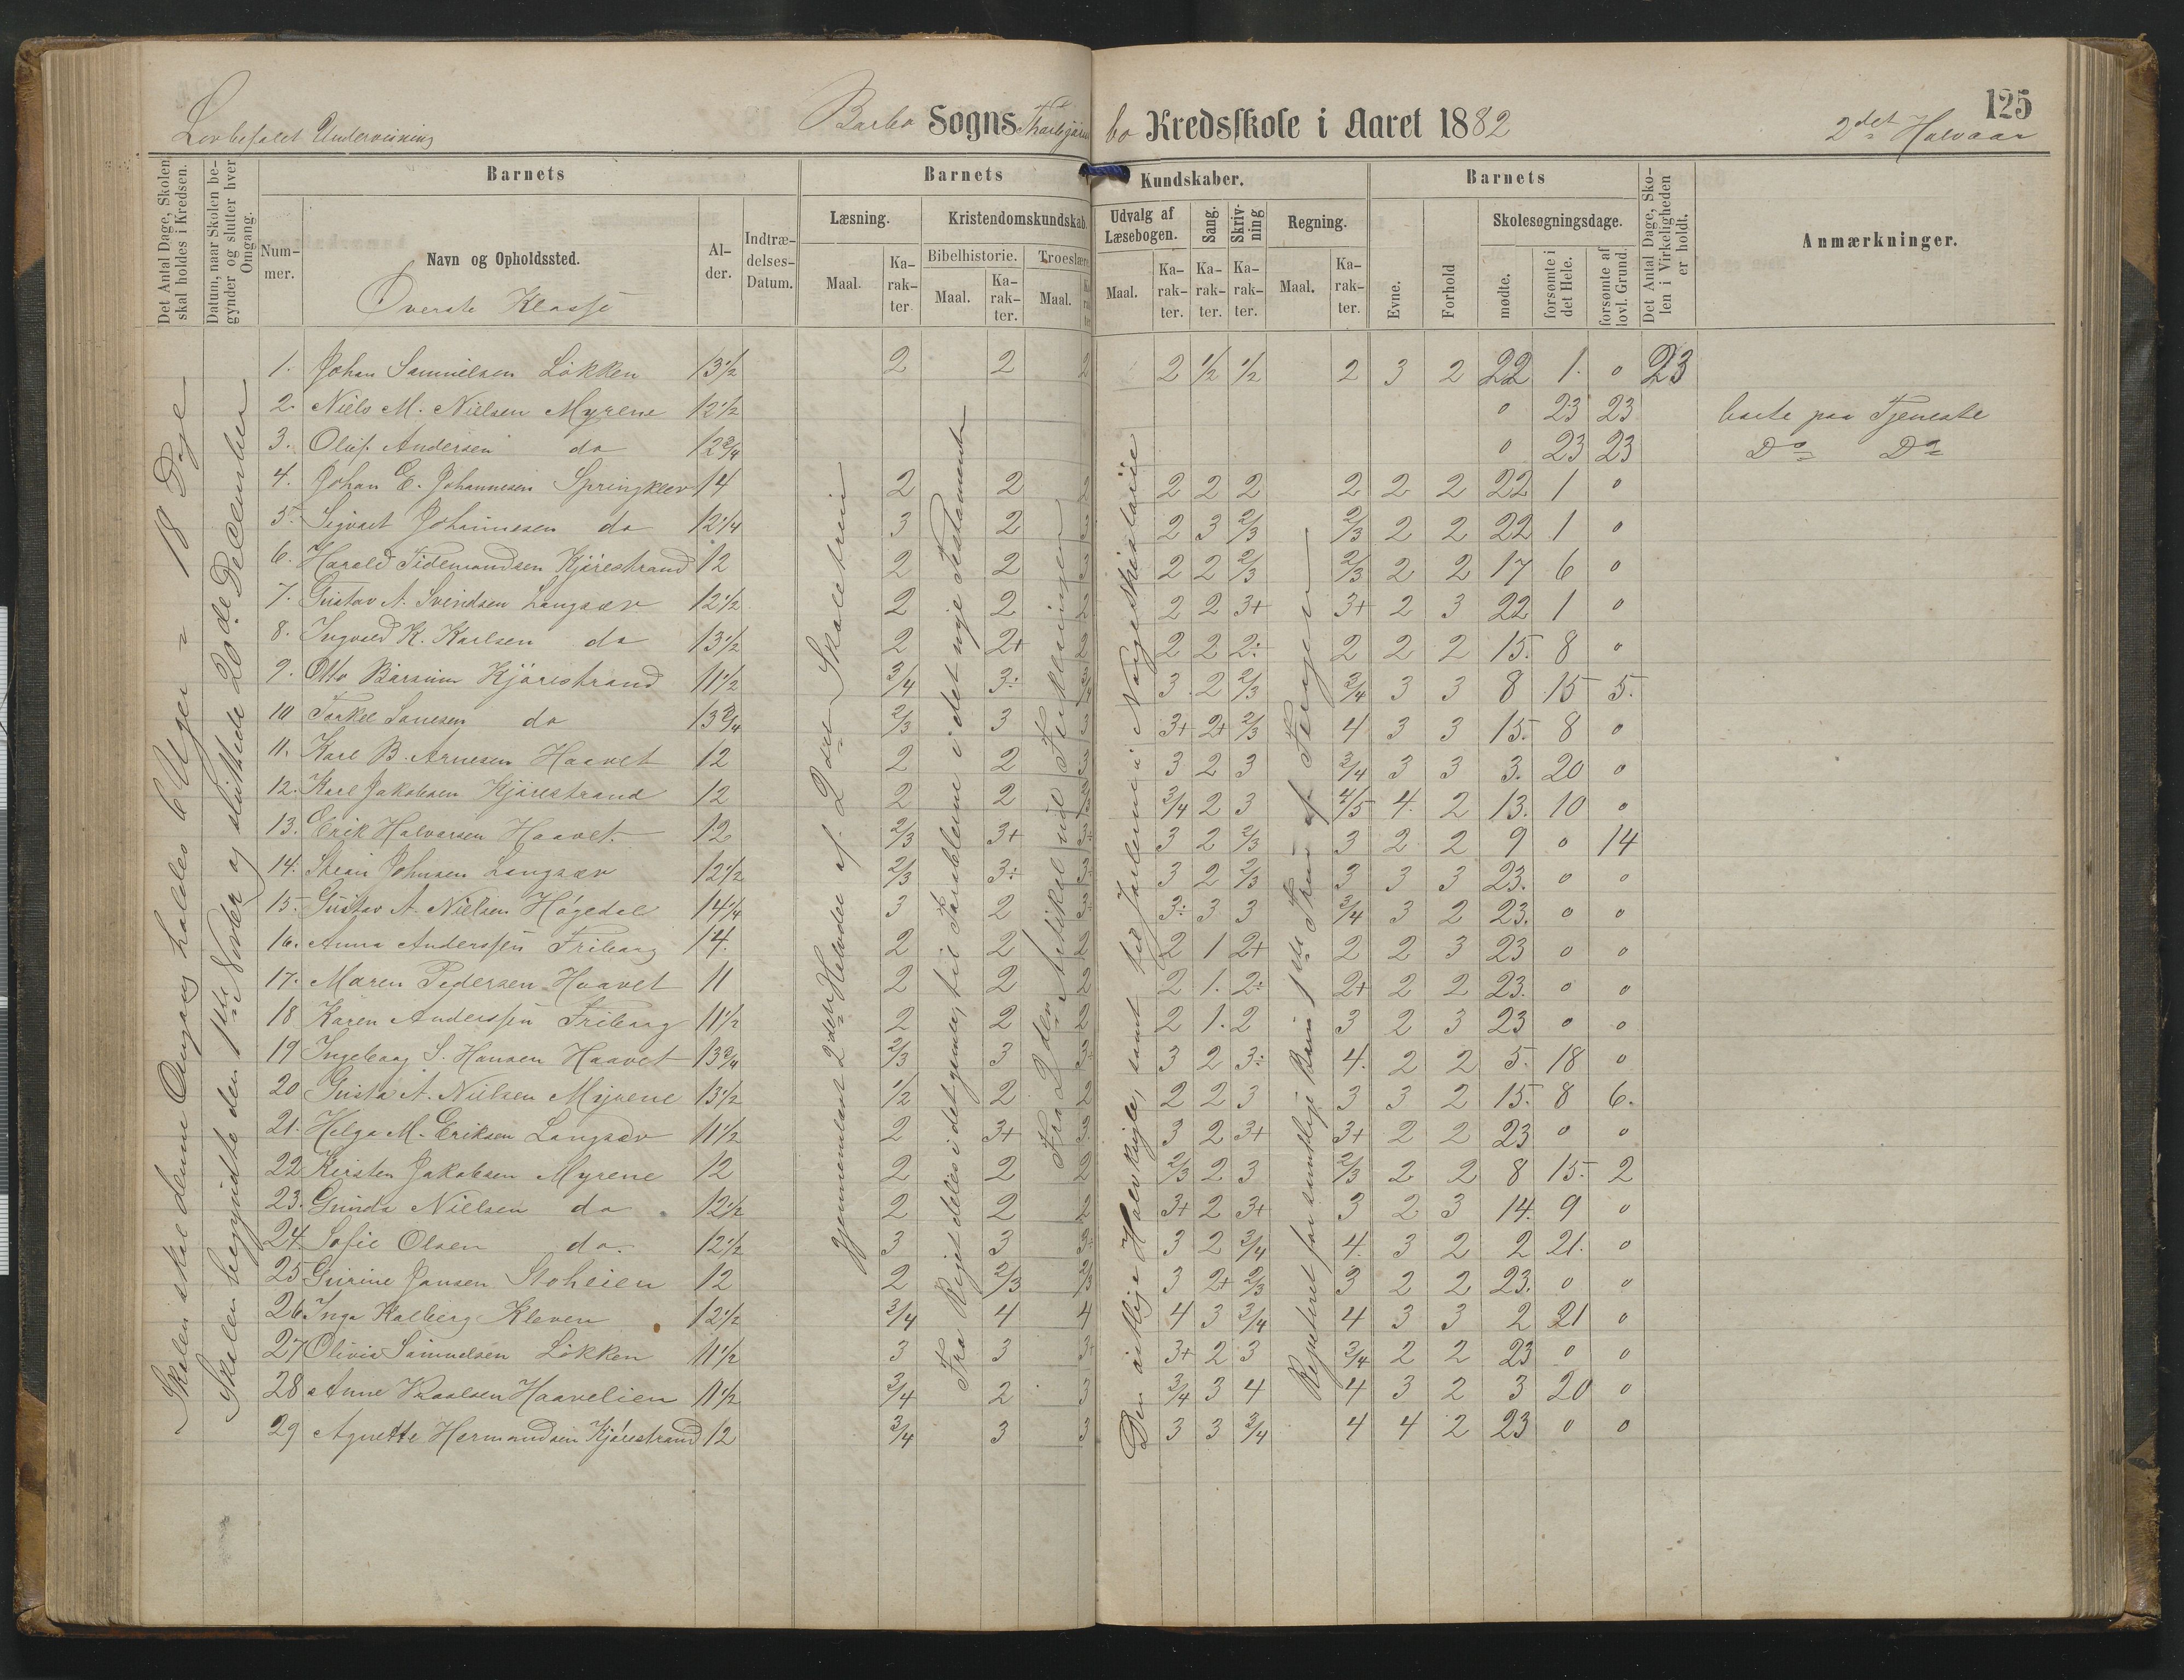 125
Lovbefalet Undervisning Barbo Sogns bo Kredsskole i Aaret 1882 2det Halvaar
Det Antal Dage, Skolen skal holdes i Kredsen.
Datum, naar Skolen begynder og slutter hver Omgang.
Barnets Barnets Kundskaber. Barnets
Det Antal Dage, Skolen i Virkeligheden er holdt.
Anmærkninger.
Læsning. Kristendomskundskab. Udvalg af Læsebogen. Sang. Skrivning Regning. Skolesøgningsdage.
Nummer. Navn og Opholdssted. Alder. Indtrædelses-Datum. Maal. Karakter. Bibelhistorie. Maal. Karakter. Troeslære Maal. Maal. Karakter. Karakter. Karakter. Maal. Karakter. Evne. Forhold mødte. forsømte i det Hele. forsømte af lovl. Grund.
Øverste Klasse
Skolen skal denne Omgang holdes 6 Uger = 18 Dage
Skolen begyndte den 1ste Novber og sluttede 20de December
Gjennemlæst 2den Halvdel af 2det Skoletrin
Fra Riget deles i det gamle, til Parablerne i det nye Testamente
Fra 2den Artikel til Forklaringen
Den østlige Halvkugle, samt til Jarlerne i Norgeshistorie
Repeteret for samtlige Børn 1ste Trin af
1. Johan Samuelsen Løkken 13 1/2 2 2 2 2 1/2 1/2 2 3 2 22 1. 0 23
2. Niels M. Nielsen Myrene 12 1/2 0 23 23 borte paa Tjeneste
3. Oluf Andersen do 12 3/4 0 23 23 Do Do
4. Johan E. Johannesen Springklev 14 2 2 2 2 2 2 2 2 2 22 1 0
5. Sigvart Johannesen do 12 1/4 3 2 3 2 3 2/3 2/3 2 2 22 1 0
6. Harald Tidemandsen Kjørestrand 12 2 2 3 2 2 2/3 2/3 2 2 17 6 0
7. Gustav A. Svendsen Langsæv 12 1/2 2 2 2 2 2 3+ 3+ 2 3 22 1 0
8. Ingvald K. Karlsen do 13 1/2 2 2+ 2 2 2 2÷ 2 2 2 15. 8 0
9. Otto Kjørestrand 11 1/2 3/4 3÷ 3/4 3 2 2/3 3/4 3 3 8 15 5.
10 Torkel do 13 3/4 2/3 3 3 3+ 2+ 2/3 4 3 3 15. 8 0
11. Karl B. Arnesen Haavet 12 2 2 3 3 2 3 3/4 3 3 3. 20 0
12. Karl Jakobsen Kjørestrand 12 2 2 3/4 2 3 4/5 4. 2 13. 10 0
13. Erik Halvorsen Haavet. 12 2/3 3+ 3÷ 3 2 2/3 3 2 2 9 0 14
14. Johnsen Langsæv 12 1/2 2/3 3÷ 3 3 2 2/3 3 3 3 23. 0 0
15. Gustav A. Nielsen Høgedal 14 1/4 3 2 3 3÷ 3 3 3/4 3 2 23. 0 0
16. Anna Anderssen Friborg 14. 2 2 2 2 1 2+ 2 2 3 23 0 0
17. Maren Pedersen Haavet 11 2 2 2 2 1. 2÷ 2+ 2 2 23. 0 0
18 Karen Anderssen Friborg 11 1/2 2 2 2 2 1. 2 3 2 3 23 0 0
19 Ingeborg S. Hansen Haavet 13 3/4 2/3 3 3÷ 3 2 3÷ 4. 2 2 5. 18 0
20 Gusta A. Nielsen Myrene 13 1/2 1/2 2 2 2 2 3 3 3 2 15. 8 6.
21. Helga M. Eriksen Langsæv 11 1/2 2 3+ 3 3 2 3+ 3+ 2 2 23 0 0
22 Kirsten Jakobsen Myrene 12 2 2 2 2/3 2 3 2/3 2 2 8 15. 2
23. Gunda Nielsen do 12 1/2 2 2 2 3+ 2 3+ 3 2 3 14. 9 0
24. Sofie Olsen do. 12 1/2 3 3 3÷ 3 2 3/4 4. 3 2 2 21. 0
25 Gurine Jansen Stoheien 12 2 2/3 2/3 3 2+ 2/3 3 2 2 23. 0 0
26 Inga Kalberg Kleven 12 1/2 3/4 4 4 4 3 3/4 4 3 3 2 21 0
27 Olivia Samuelsen Løkken 11 1/2 3 3 3+ 3+ 2 3 3/4 2 2 23 0 0
28 Anne Haavelien 11 1/2 3/4 2 3 3/4 3 4 4 3 2 3 20 0
29 Agnette Hermandsen Kjørestrand 12 3/4 3 3 3 3 3/4 4 4 2 23 0 0